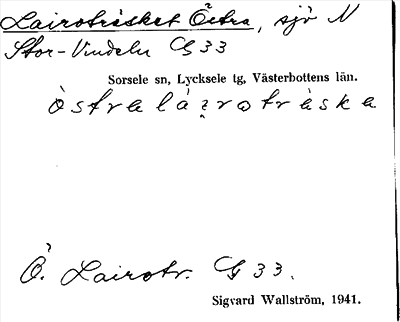 Lairoträsket Östra, sjö N
Stor-Vindeln G 33
Sorsele sn, Lycksele tg, Västerbottens län.
östralairoträska
Ö. Lairotr. G 33.
Sigvard Wallström, 1941.